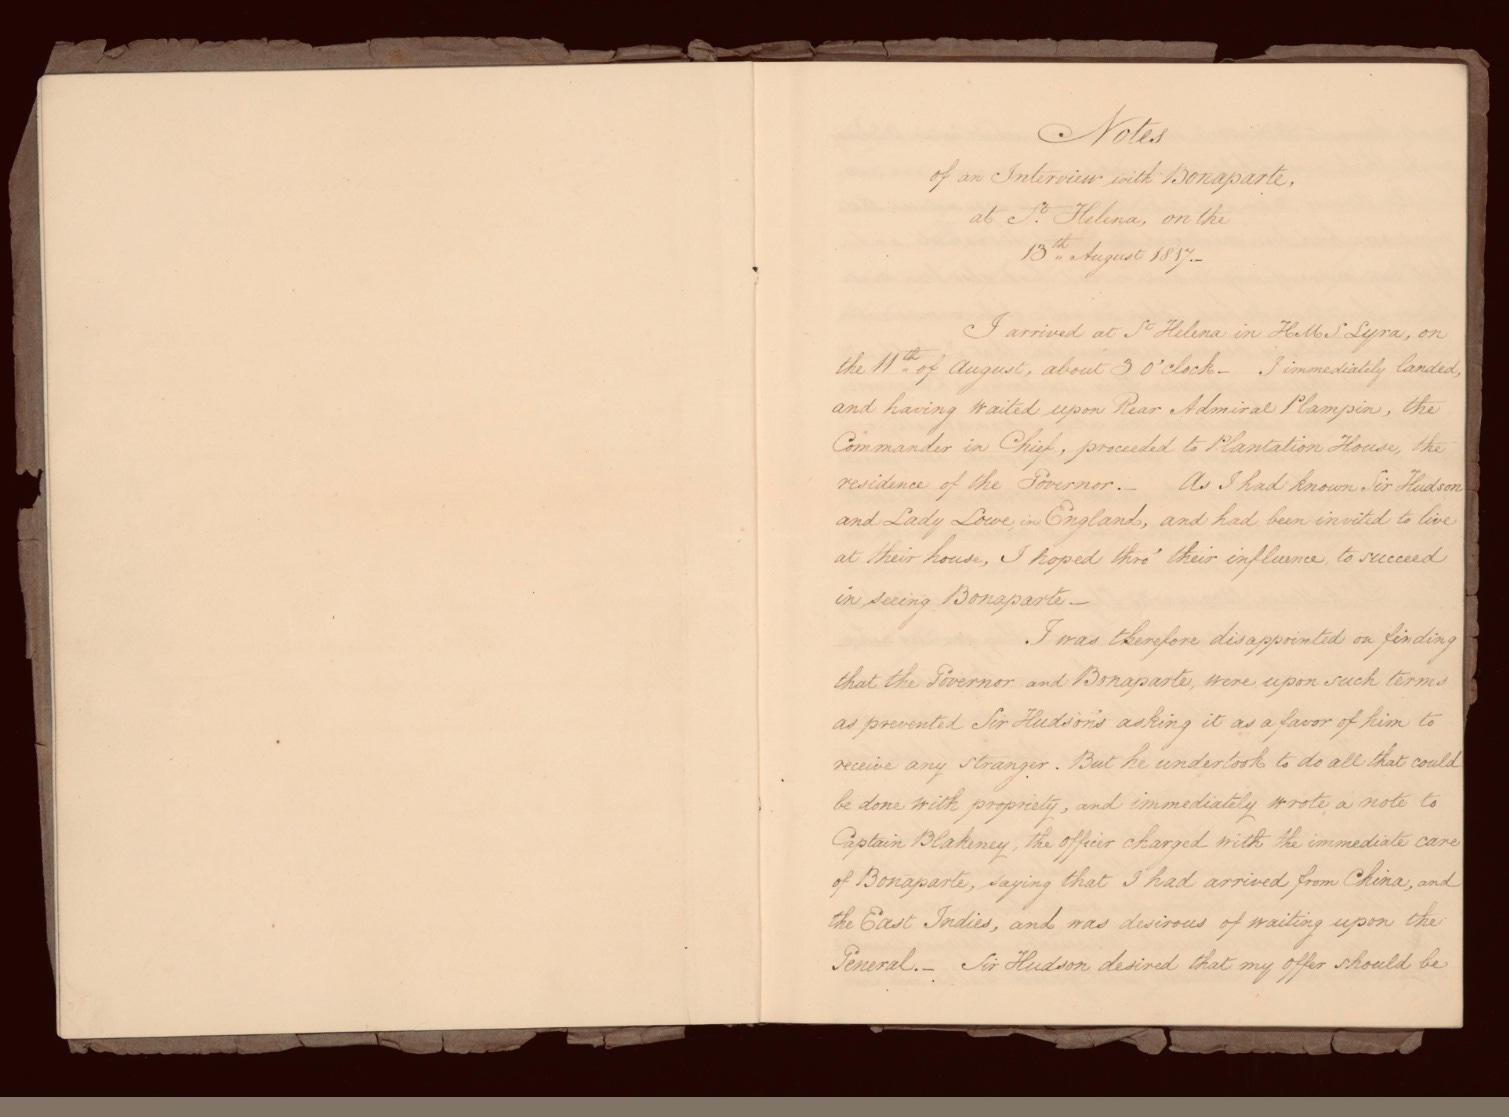 Notes
of an Interview with Bonaparte,
at St. Helena, on the
13th August 1817.—
I arrived at St Helena in HMS Lyra, on
the 11th of August, about 3 o'clock— I immediately landed,
and having waited upon Rear Admiral Plampin, the
Commander in Chief, proceeded to Plantation House, the
residence of the Governor.— As I had known Sir Hudson
and Lady Lowe in England, and had been invited to live
at their house, I hoped thro' their influence, to succeed
in seeing Bonaparte—
I was therefore disappointed on finding
that the Governor and Bonaparte, were upon such terms
as prevented Sir Hudson's asking it as a favor of him to
receive any stranger. But he undertook to do all that could
be done with propriety, and immediately wrote a note to
Captain Blakeney, the officer charged with the immediate care
of Bonaparte, saying that I had arrived from China, and
the East Indies, and was desirous of waiting upon the
General.— Sir Hudson desired that my offer should be